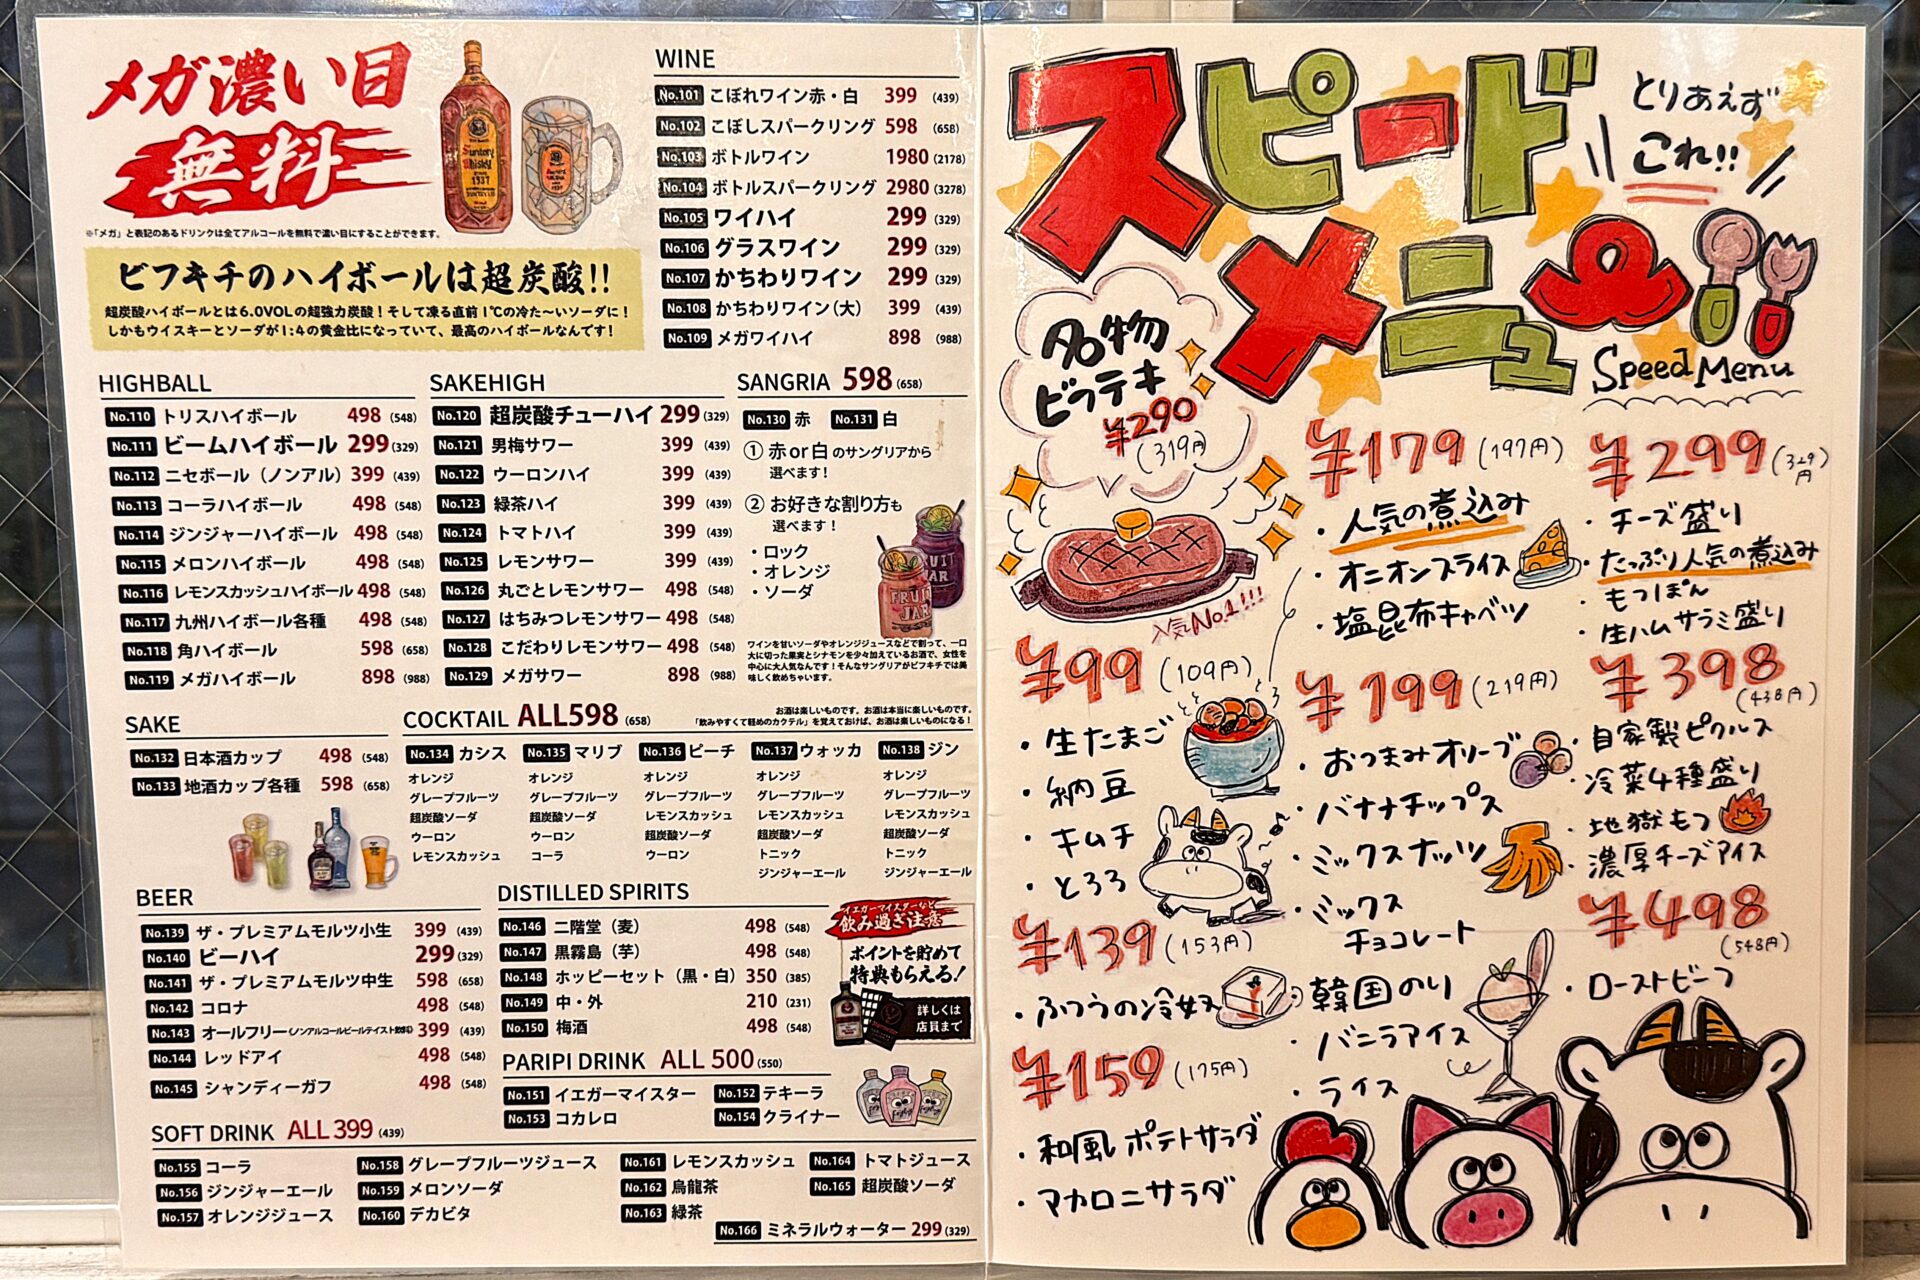 メガ濃い目
無料
※「メガ」と表記のあるドリンクは全てアルコールを無料で濃い目にすることができます。
ビフキチのハイボールは超炭酸!!
超炭酸ハイボールとは6.0VOLの超強力炭酸！そして凍る直前1℃の冷た〜いソーダに！
しかもウイスキーとソーダが1:4の黄金比になっていて、最高のハイボールなんです！
WINE
No.101 こぼれワイン赤・白 399 (439)
No.102 こぼしスパークリング 598 (658)
No.103 ボトルワイン 1980 (2178)
No.104 ボトルスパークリング 2980 (3278)
No.105 ワイハイ 299 (329)
No.106 グラスワイン 299 (329)
No.107 かちわりワイン 299 (329)
No.108 かちわりワイン（大） 399 (439)
No.109 メガワイハイ 898 (988)
HIGHBALL
No.110 トリスハイボール 498 (548)
No.111 ビームハイボール 299 (329)
No.112 ニセボール（ノンアル） 399 (439)
No.113 コーラハイボール 498 (548)
No.114 ジンジャーハイボール 498 (548)
No.115 メロンハイボール 498 (548)
No.116 レモンスカッシュハイボール 498 (548)
No.117 九州ハイボール各種 498 (548)
No.118 角ハイボール 598 (658)
No.119 メガハイボール 898 (988)
SAKEHIGH
No.120 超炭酸チューハイ 299 (329)
No.121 男梅サワー 399 (439)
No.122 ウーロンハイ 399 (439)
No.123 緑茶ハイ 399 (439)
No.124 トマトハイ 399 (439)
No.125 レモンサワー 399 (439)
No.126 丸ごとレモンサワー 498 (548)
No.127 はちみつレモンサワー 498 (548)
No.128 こだわりレモンサワー 498 (548)
No.129 メガサワー 898 (988)
SANGRIA 598 (658)
No.130 赤 No.131 白
① 赤or白のサングリアから
選べます！
② お好きな割り方も
選べます！
・ロック
・オレンジ
・ソーダ
FRUIT JAR
FRUIT JAR
ワインを甘いソーダやオレンジジュースなどで割って、一口
大に切った果実とシナモンを少々加えているお酒で、女性を
中心に大人気なんです！そんなサングリアがビフキチでは美
味しく飲めちゃいます。
SAKE
No.132 日本酒カップ 498 (548)
No.133 地酒カップ各種 598 (658)
COCKTAIL ALL598 (658)
お酒は楽しいものです。お酒は本当に楽しいものです。
「飲みやすくて軽めのカクテル」を覚えておけば、お酒は楽しいものになる！
No.134 カシス
オレンジ
グレープフルーツ
超炭酸ソーダ
ウーロン
レモンスカッシュ
No.135 マリブ
オレンジ
グレープフルーツ
超炭酸ソーダ
ウーロン
コーラ
No.136 ピーチ
オレンジ
グレープフルーツ
レモンスカッシュ
超炭酸ソーダ
ウーロン
No.137 ウォッカ
オレンジ
グレープフルーツ
レモンスカッシュ
超炭酸ソーダ
トニック
ジンジャーエール
No.138 ジン
オレンジ
グレープフルーツ
レモンスカッシュ
超炭酸ソーダ
トニック
ジンジャーエール
BEER
No.139 ザ・プレミアムモルツ小生 399 (439)
No.140 ビーハイ 299 (329)
No.141 ザ・プレミアムモルツ中生 598 (658)
No.142 コロナ 498 (548)
No.143 オールフリー(ノンアルコールビールテイスト飲料) 399 (439)
No.144 レッドアイ 498 (548)
No.145 シャンディーガフ 498 (548)
DISTILLED SPIRITS
No.146 二階堂（麦） 498 (548)
No.147 黒霧島（芋） 498 (548)
No.148 ホッピーセット（黒・白） 350 (385)
No.149 中・外 210 (231)
No.150 梅酒 498 (548)
イエガーマイスターなど
飲み過ぎ注意
ポイントを貯めて
特典もらえる！
詳しくは
店員まで
PARIPI DRINK ALL 500 (550)
No.151 イエガーマイスター No.152 テキーラ
No.153 コカレロ No.154 クライナー
SOFT DRINK ALL 399 (439)
No.155 コーラ
No.156 ジンジャーエール
No.157 オレンジジュース
No.158 グレープフルーツジュース
No.159 メロンソーダ
No.160 デカビタ
No.161 レモンスカッシュ
No.162 烏龍茶
No.163 緑茶
No.164 トマトジュース
No.165 超炭酸ソーダ
No.166 ミネラルウォーター 299 (329)
スピード
メニュー
とりあえず
これ!!
Speed Menu
名物
ビフテキ
¥290
(319円)
人気No.1!!!
¥99 (109円)
・生たまご
・納豆
・キムチ
・とろろ
¥139 (153円)
・ふつうの冷奴
¥159 (175円)
・和風ポテトサラダ
・マカロニサラダ
¥179 (197円)
・人気の煮込み
・オニオンスライス
・塩昆布キャベツ
¥199 (219円)
・おつまみオリーブ
・バナナチップス
・ミックスナッツ
・ミックス
チョコレート
・韓国のり
・バニラアイス
・ライス
¥299 (329円)
・チーズ盛り
・たっぷり人気の煮込み
・もつぽん
・生ハムサラミ盛り
¥398 (438円)
・自家製ピクルス
・冷菜4種盛り
・地獄もつ
・濃厚チーズアイス
¥498 (548円)
・ローストビーフ